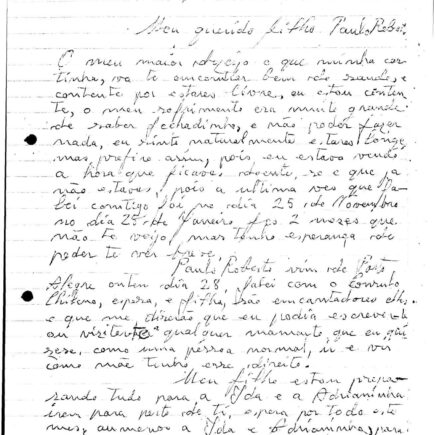 Meu querido filho Paulo Robert.
O meu maior desejo e que minha car
tinha, va te encontrar bem de saude, e
contente por estares livre, eu estou conten
te, o meu sofrimento era muito grande
de saber fechadinho, e não poder fazer
nada, eu sinto naturalmente estares longe
mas prefiro asim, pois, eu estava vendo
a hora que ficavas doente, so e que a
não estavas, pois a ultima ves que
bei comtigo foi no dia 25 de Novembro
no dia 25 de Janeiro fes 2 mezes que
não te vejo, mas tenho esperança de
poder te ver breve.
Paulo Roberto vim de Porto
Alegre onten dia 28, falei com o Consul
Chileno, e filha, são emcantadores
e que me que eu podia escrever
ou qualquer mamento, que eu qui
zese, como uma pessoa normal,
como mãe tenho esse direito.
Meu filho estou prepa
rando tudo para a Ida e a Adrianinha
irem para perto de ti, espera por todo este
mes, au menos a Ida e Adrianinha, para